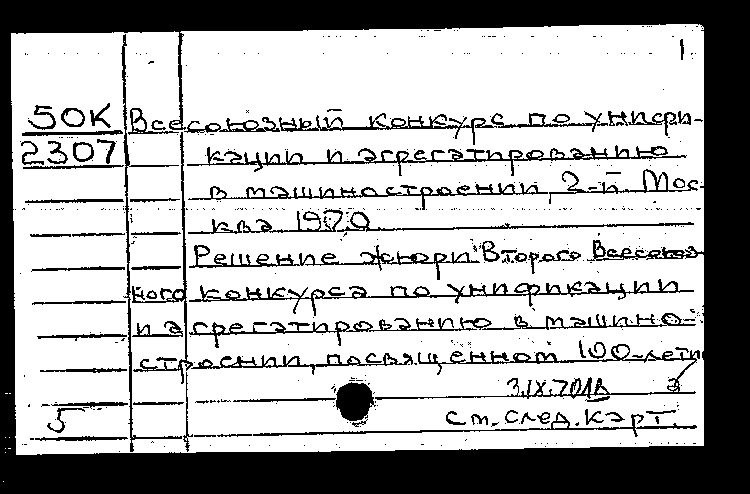 1
50К Всесоюзный конкурс по унифи-
2307 кации и агрегатированию
в машиностроении, 2-й. Мос-
ква 1970.
Решение жюри Второго Всесоюз-
ного конкурса по унификации
и агрегатированию в машино-
строении, посвященном 100-лети
3.IX.70
5 См. след. карт.